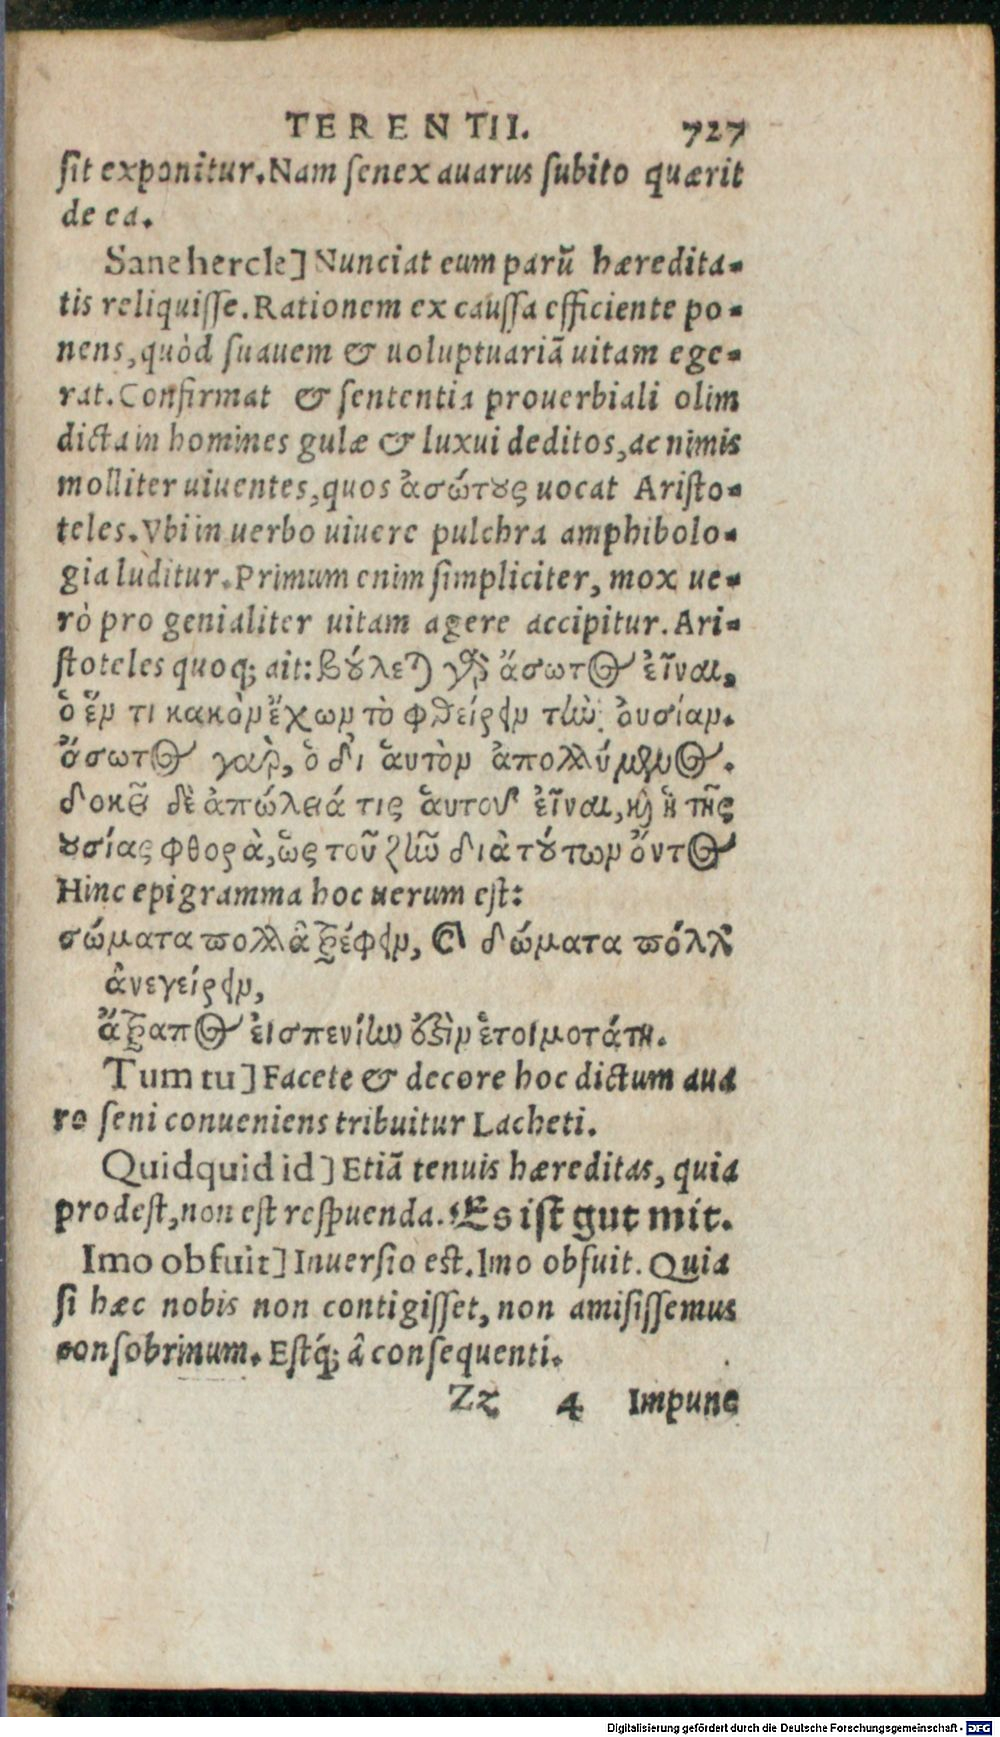 TERENTII. 727
sit exponitur. Nam senex auarus subito quærit
de ea.
Sane hercle] Nunciat eum parũ hæredita-
tis reliquisse. Rationem ex caussa efficiente po-
nens, quòd suauem & uoluptuariã uitam ege-
rat. Confirmat & sententia prouerbiali olim
dicta in homines gulæ & luxui deditos, ac nimis
molliter uiuentes, quos ἀσώτȣς uocat Aristo-
teles. Vbi in uerbo uiuere pulchra amphibolo-
gia luditur. Primum enim simpliciter, mox ue-
rò pro genialiter uitam agere accipitur. Ari-
stoteles quoq; ait: βȣ́λεται γὰρ ἄσωτος εἶναι,
ὁ ἕν τι κακὸν ἔχων τὸ φθείρειν τὴν ὀυσίαν.
ἄσωτος γὰρ, ὁ δι ἁυτὸν ἀπολλύμενος.
δοκεῖ δὲ ἀπώλειά τις ἁυτοῦ εἶναι, καὶ ἡ τῆς
ȣσίας φθορὰ, ὡς τοῦ ζῆν διὰ τȣ́των ὄντος
Hinc epigramma hoc uerum est:
σώματα πολλὰ τρέφειν, καὶ δώματα πόλλ
ἀνεγείρειν,
ἄτραπος εἰσπενίην ὅξιν ἑτοιμοτάτη.
Tum tu] Facete & decore hoc dictum aua
ro seni conueniens tribuitur Lacheti.
Quidquid id] Etiã tenuis hæreditas, quia
prodest, non est respuenda. Es ist gut mit.
Imo obfuit] Inuersio est. Imo obfuit. Quia
si hæc nobis non contigisset, non amisissemus
consobrinum. Estq́; à consequenti.
Zz 4 Impune
Digitalisierung gefördert durch die Deutsche Forschungsgemeinschaft - DFG